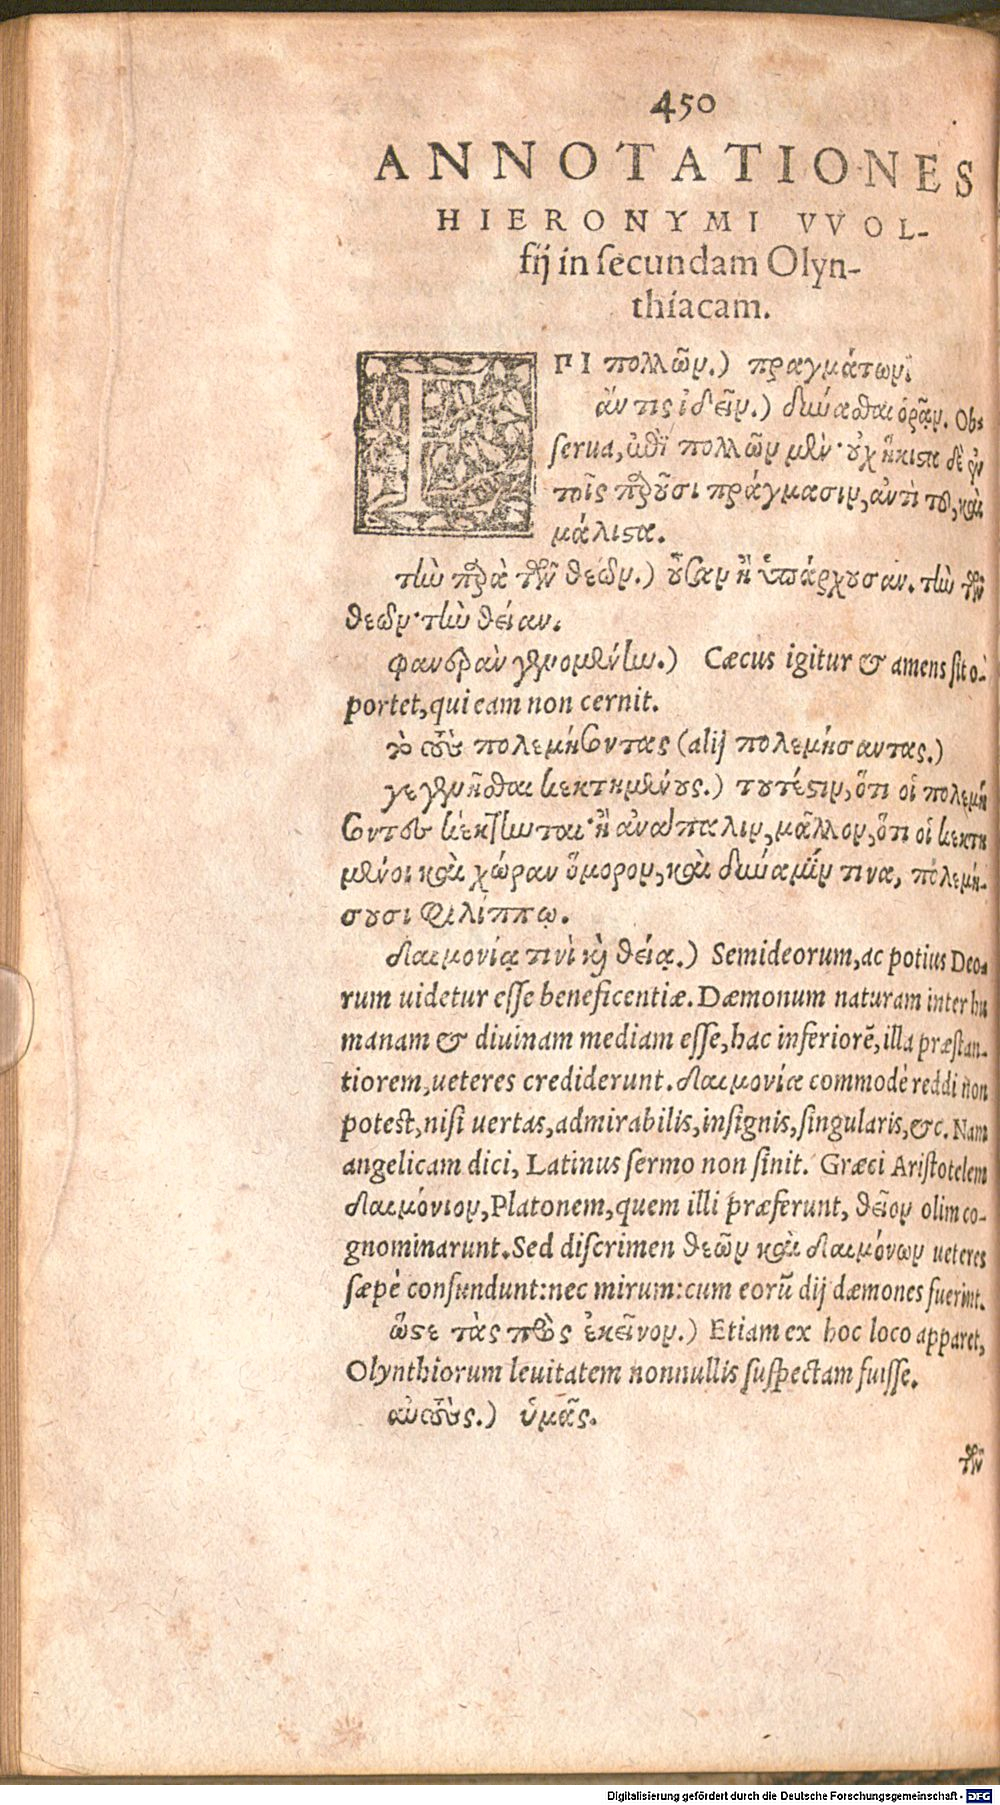 450
ANNOTATIONES
HIERONYMI VVOL-
fij in secundam Olyn-
thiacam.
ΕΠΙ πολλῶν.) πραγμάτων.
ἄν τις ἰδεῖν.) δύνασθαι ὁρᾷν. Ob-
serua, ἐπὶ πολλῶν μὲν· οὐχ ἥκιστα δὲ ἐν
τοῖς παροῦσι πράγμασιν, ἀντὶ τοῦ, καὶ
μάλιστα.
τὴν παρὰ τῶν θεῶν.) οὖσαν ἢ ὑπάρχουσαν. τὴν τῶν
θεῶν· τὴν θείαν.
φανερὰν γενομένην.) Cæcus igitur & amens sit o-
portet, qui eam non cernit.
τὸ τοὺς πολεμήσοντας (alij πολεμήσαντας.)
γεγενῆσθαι κεκτημένους.) τουτέστιν, ὅτι οἱ πολεμή
σοντες κέκτηνται· ἢ ἀνάπαλιν, μᾶλλον, ὅτι οἱ κεκτη
μένοι καὶ χώραν ὅμορον, καὶ δύναμίν τινα, πολεμή-
σουσι Φιλίππῳ.
δαιμονίᾳ τινὶ καὶ θείᾳ.) Semideorum, ac potius Deo-
rum uidetur esse beneficentiæ. Dæmonum naturam inter hu
manam & diuinam mediam esse, hac inferiorē, illa præstan-
tiorem, ueteres crediderunt. δαιμονία commodè reddi non
potest, nisi uertas, admirabilis, insignis, singularis, &c. Nam
angelicam dici, Latinus sermo non sinit. Græci Aristotelem
δαιμόνιον, Platonem, quem illi præferunt, θεῖον olim co-
gnominarunt. Sed discrimen θεῶν καὶ δαιμόνων ueteres
sæpè confundunt: nec mirum: cum eorū dij dæmones fuerint.
ὥστε τὰς πρὸς ἐκεῖνον.) Etiam ex hoc loco apparet,
Olynthiorum leuitatem nonnullis suspectam fuisse.
αὐτοὺς.) ὑμᾶς.
τῶν
Digitalisierung gefördert durch die Deutsche Forschungsgemeinschaft - DFG